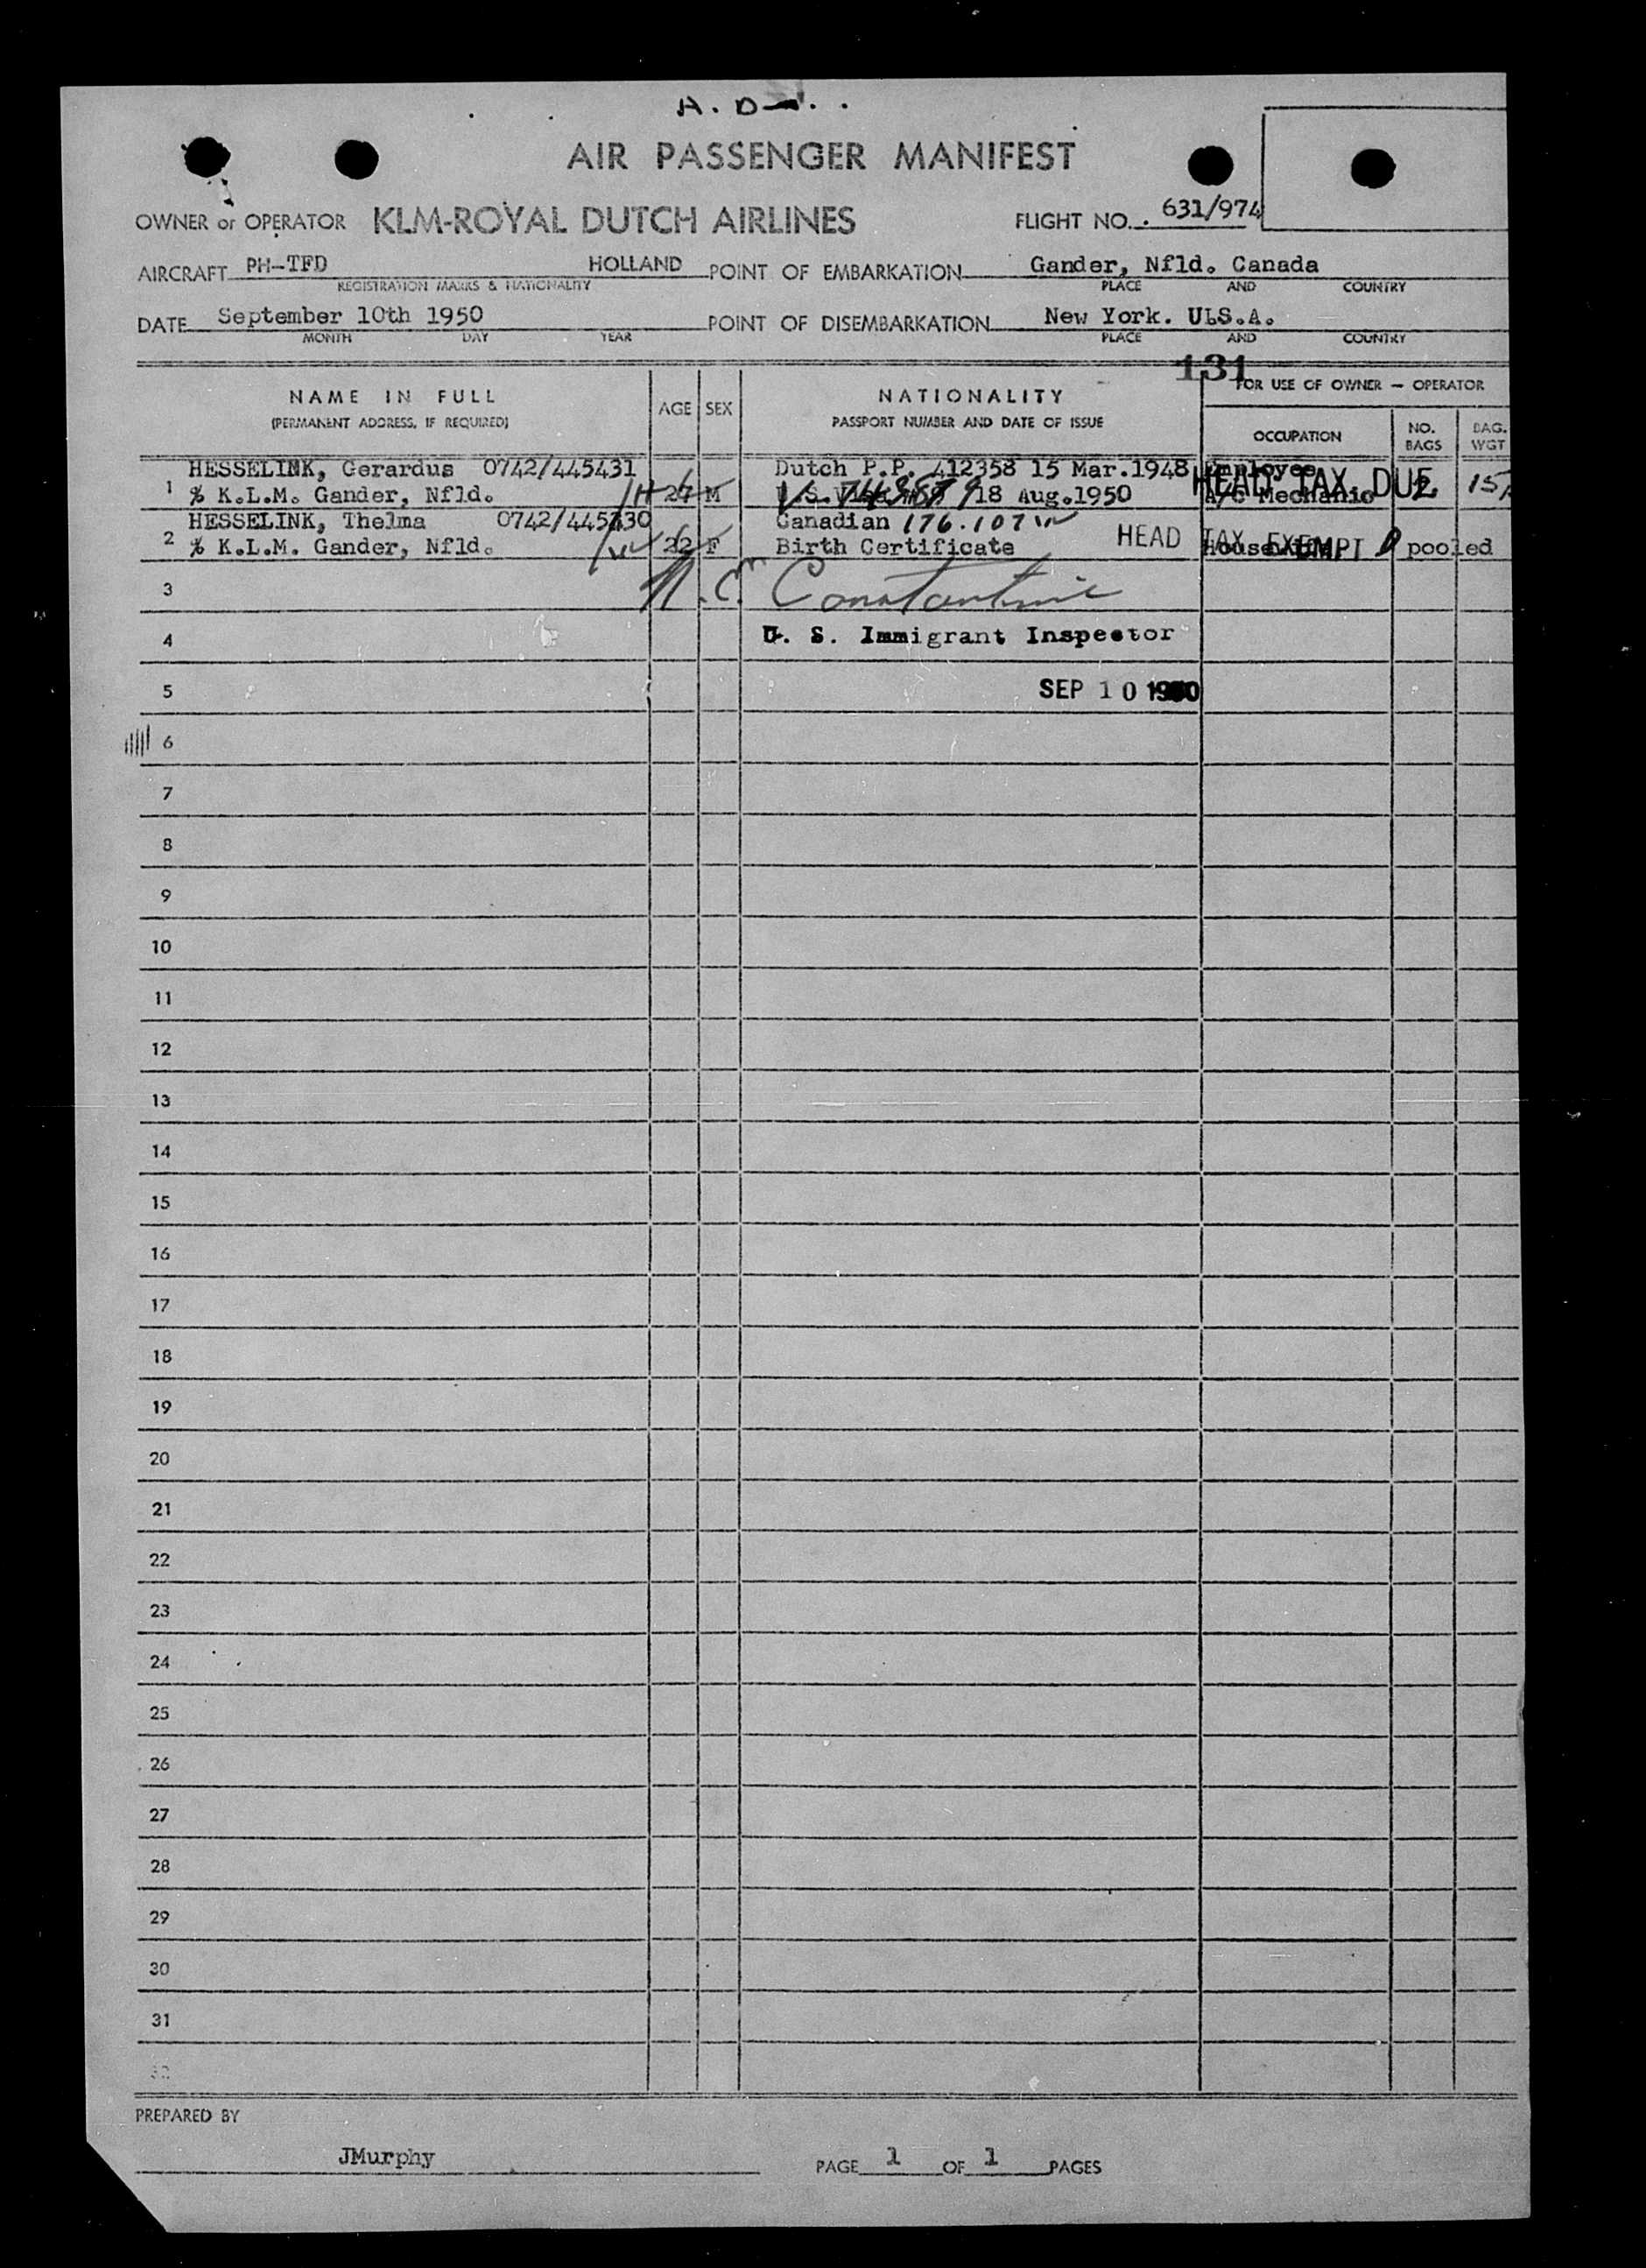 AIR PASSENGER MANIFEST
OWNER or OPERATOR KLM-ROYAL DUTCH AIRLINES FLIGHT NO. 631/974
AIRCRAFT PH-TFD HOLLAND POINT OF EMBARKATION Gander, Nfld. Canada
REGISTRATION MARKS & NATIONALITY PLACE AND COUNTRY
DATE September 10th 1950 POINT OF DISEMBARKATION New York. ULS.A.
MONTH DAY YEAR PLACE AND COUNTRY
131
NAME IN FULL AGE SEX NATIONALITY FOR USE OF OWNER - OPERATOR
(PERMANENT ADDRESS, IF REQUIRED) PASSPORT NUMBER AND DATE OF ISSUE OCCUPATION NO. BAGS BAG. WGT
HESSELINK, Gerardus 0742/445431 Dutch P.P. 412358 15 Mar.1948 Employee
1 % K.L.M. Gander, Nfld. 27 M 18 Aug.1950 A/C Mechanic HEAD TAX DUE
HESSELINK, Thelma Canadian 176.107
2 % K.L.M. Gander, Nfld. 22 F Birth Certificate HEAD TAX EXEMPT Housewife pooled
3 Constantine
4 U. S. Immigrant Inspector
5 SEP 10 1950
6
7
8
9
10
11
12
13
14
15
16
17
18
19
20
21
22
23
24
25
26
27
28
29
30
31
32
PREPARED BY
JMurphy PAGE 1 OF 1 PAGES